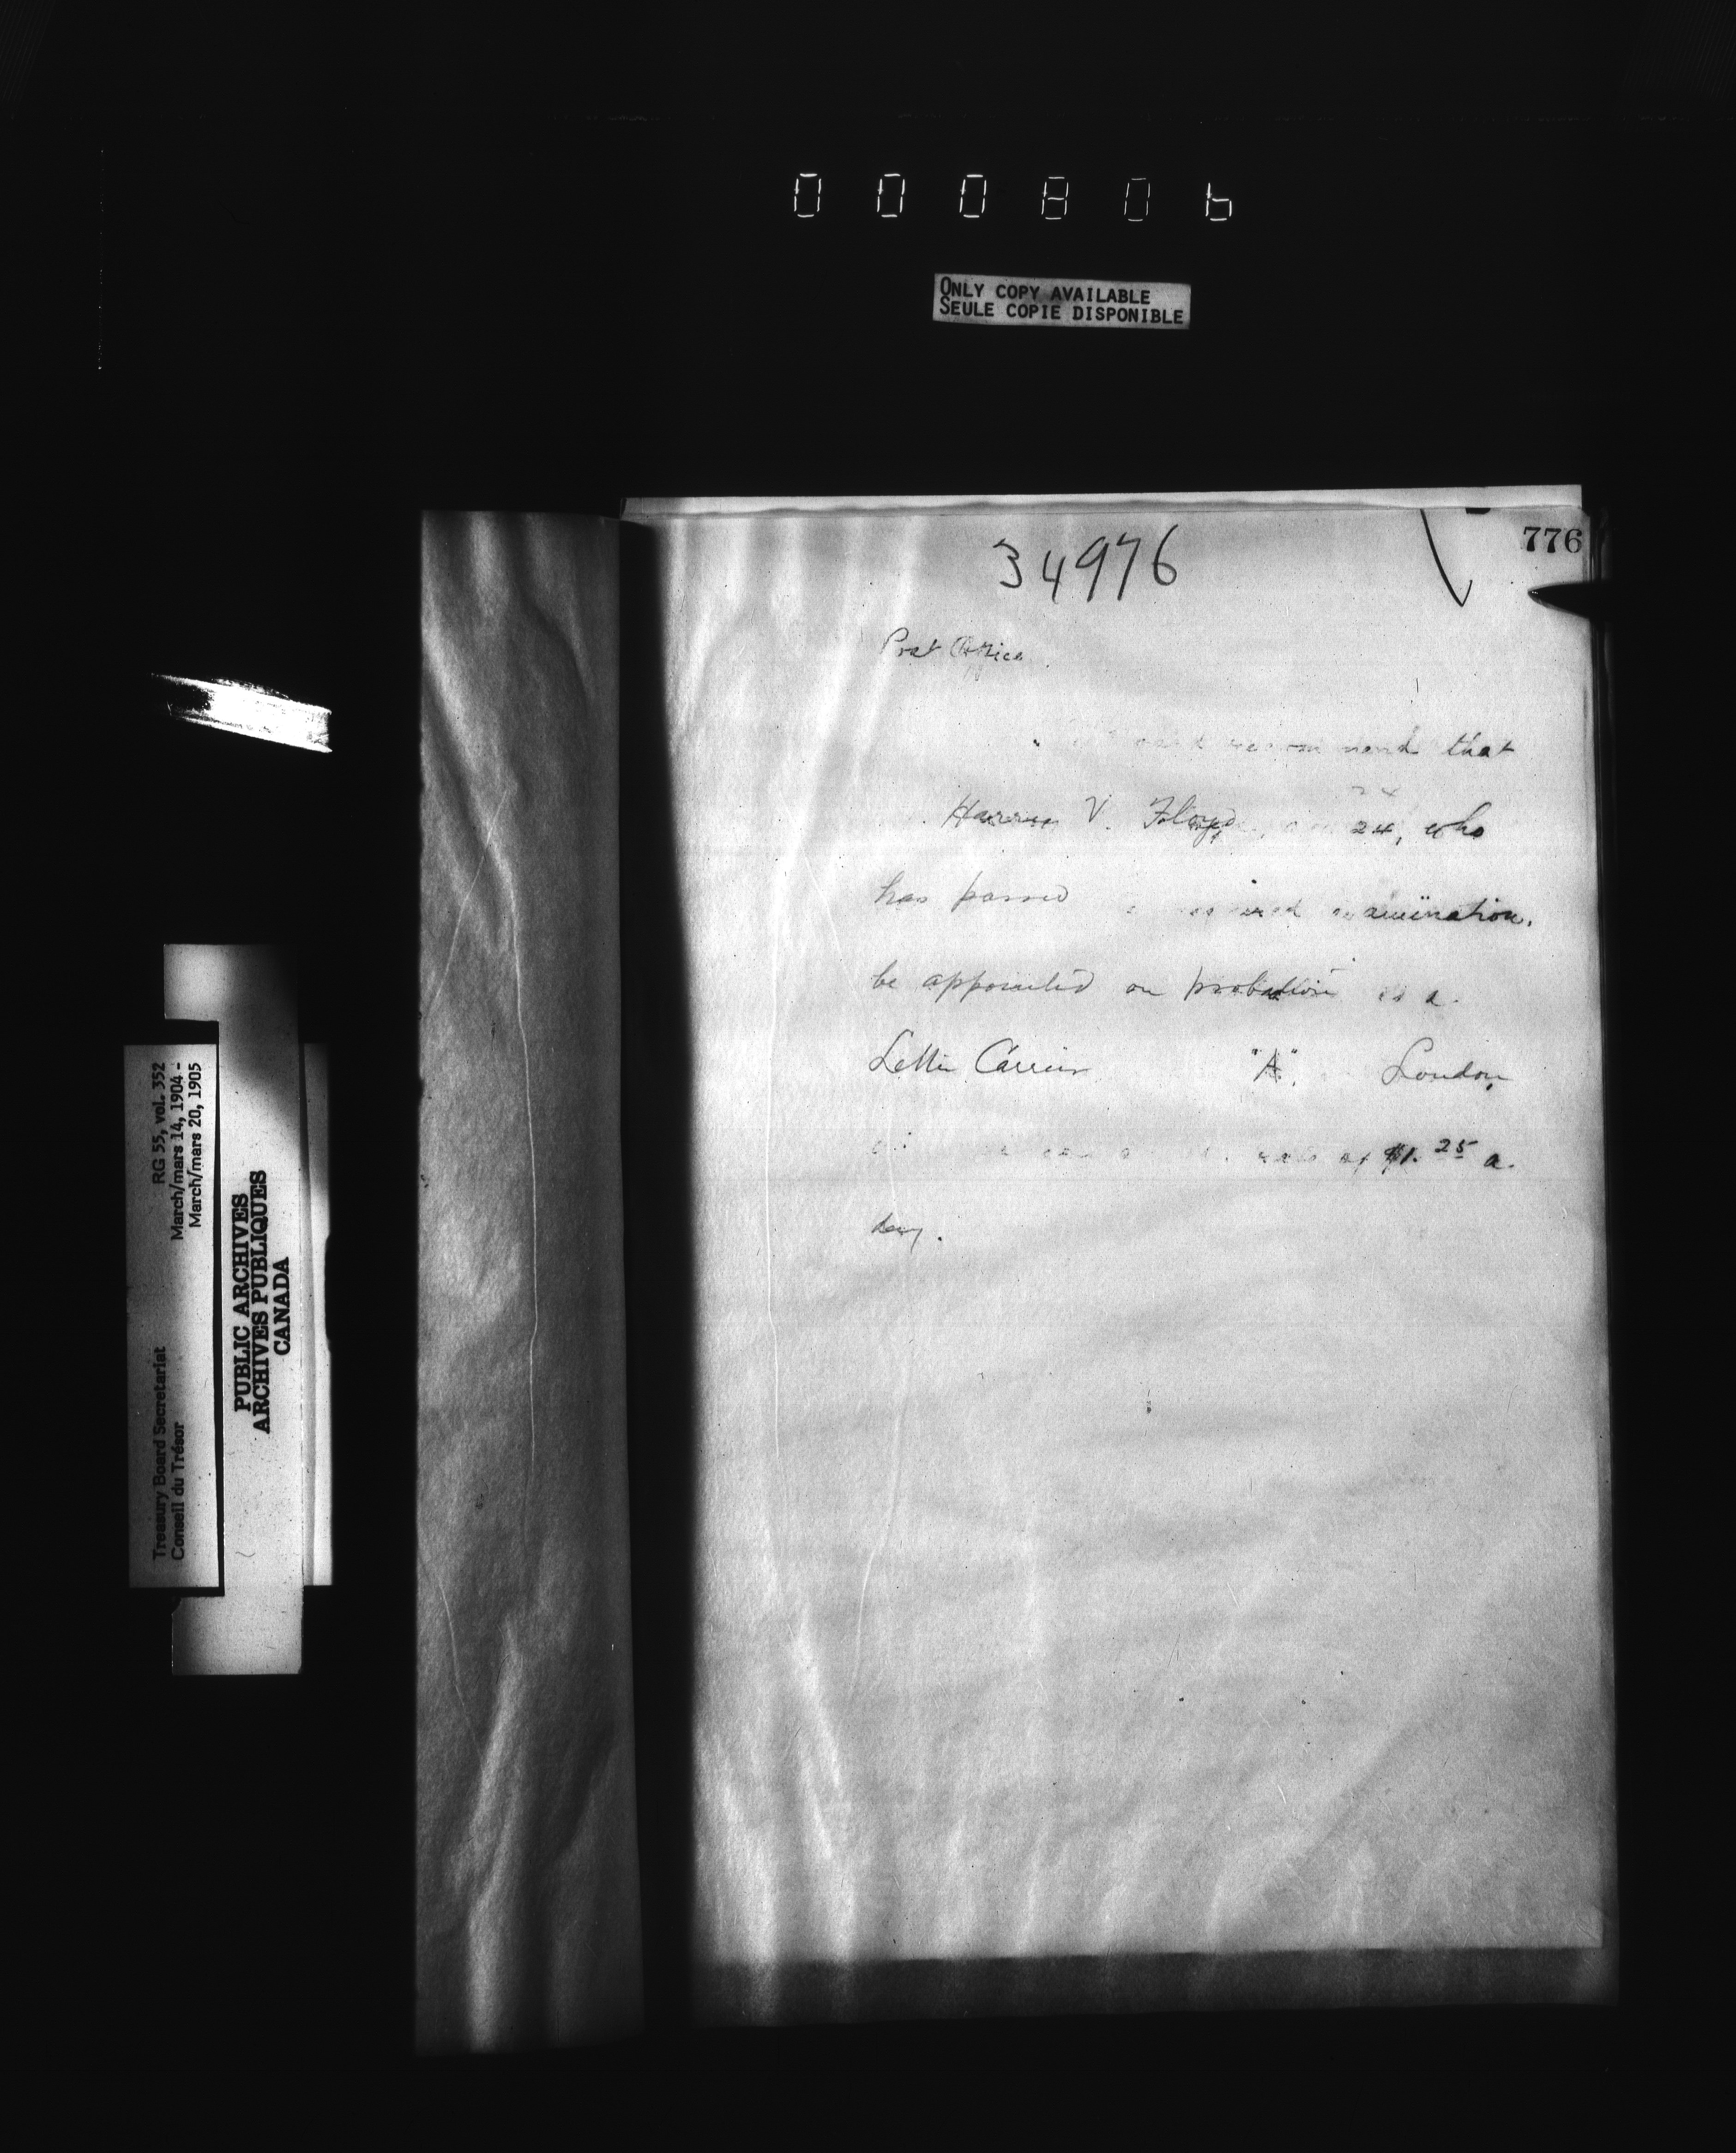 000806
ONLY COPY AVAILABLE
SEULE COPIE DISPONIBLE
776
34976
Post Office
recommend that
V. Floyd, 24, who
has passed examination.
be appointed on probation as a
Letter Carrier "A". London,
rate of $1.25 a
day.
Treasury Board Secretariat RG 55, vol. 352
Conseil du Trésor March/mars 14, 1904 -
March/mars 20, 1905
PUBLIC ARCHIVES
ARCHIVES PUBLIQUES
CANADA